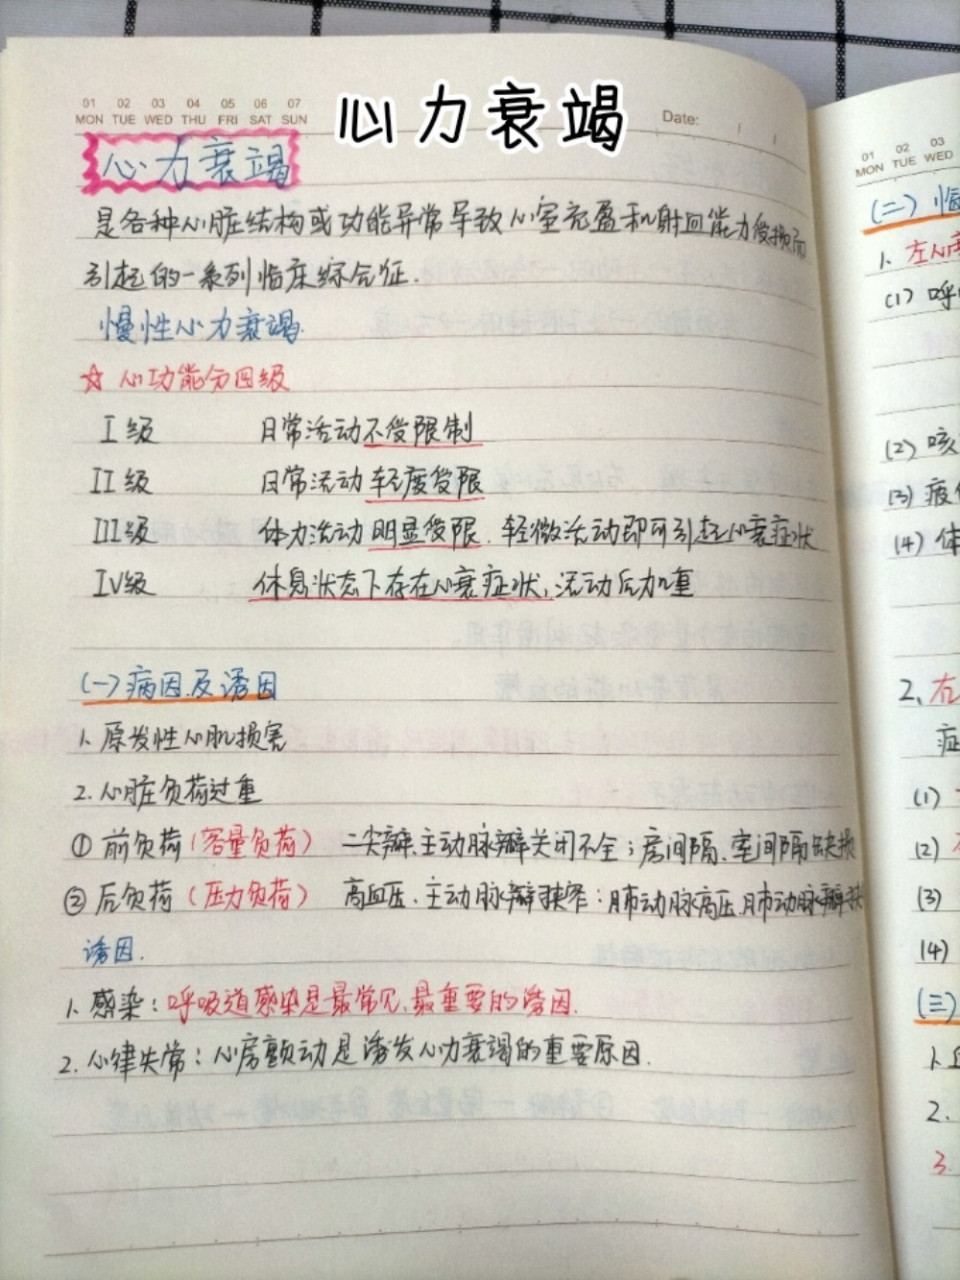 心力衰竭
01 02 03 04 05 06 07
MON TUE WED THU FRI SAT SUN
Date:
心力衰竭
是各种心脏结构或功能异常导致心室充盈和射血能力受损而
引起的一系列临床综合征.
慢性心力衰竭.
☆ 心功能分四级
I级 日常活动不受限制
II级 日常活动轻度受限
III级 体力活动明显受限.轻微活动即可引起心衰症状
IV级 休息状态下存在心衰症状,活动后加重
(一)病因及诱因
1.原发性心肌损害
2.心脏负荷过重
①前负荷(容量负荷) 二尖瓣.主动脉瓣关闭不全;房间隔.室间隔缺损
②后负荷(压力负荷) 高血压.主动脉瓣狭窄:肺动脉高压.肺动脉瓣狭
诱因.
1.感染:呼吸道感染是最常见.最重要的诱因.
2.心律失常:心房颤动是诱发心力衰竭的重要原因.
01 02 03
MON TUE WED
(二)临
1.左心
(1)呼
(2)咳
(3)疲
(4)体
2.右
症
(1)
(2)
(3)
(4)
(三)
1.
2.
3.